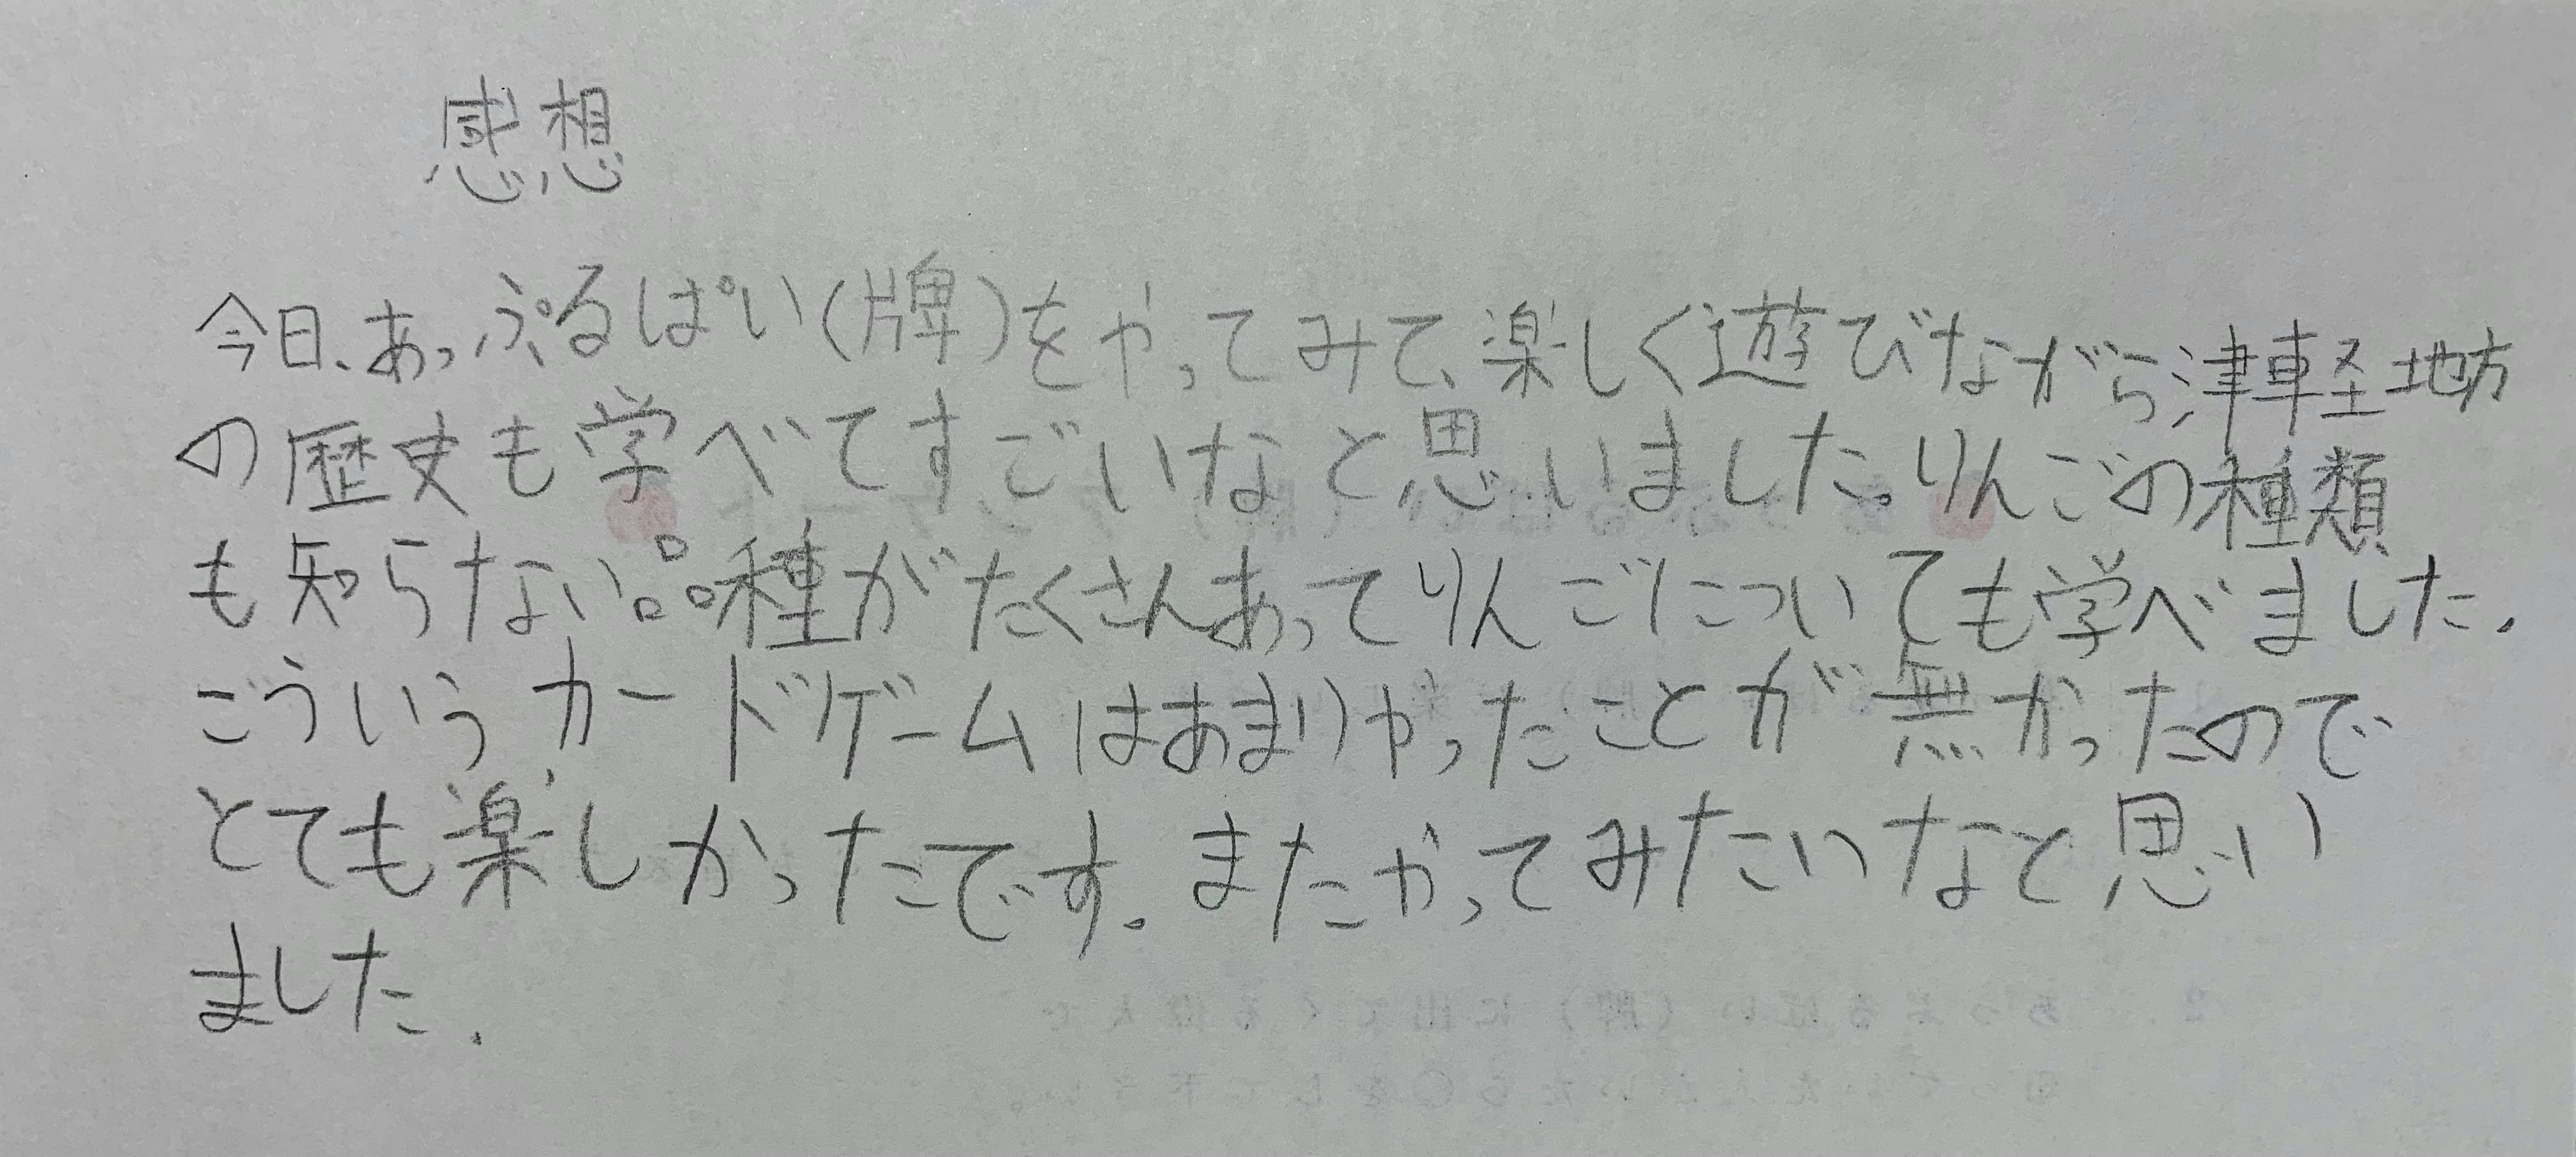 感想
今日、あっぷるぱい(牌)をやってみて、楽しく遊びながら津軽地方
の歴史も学べてすごいなと思いました。りんごの種類
も知らない品種がたくさんあってりんごについても学べました。
こういうカードゲームはあまりやったことが無かったので
とても楽しかったです。またやってみたいなと思い
ました。